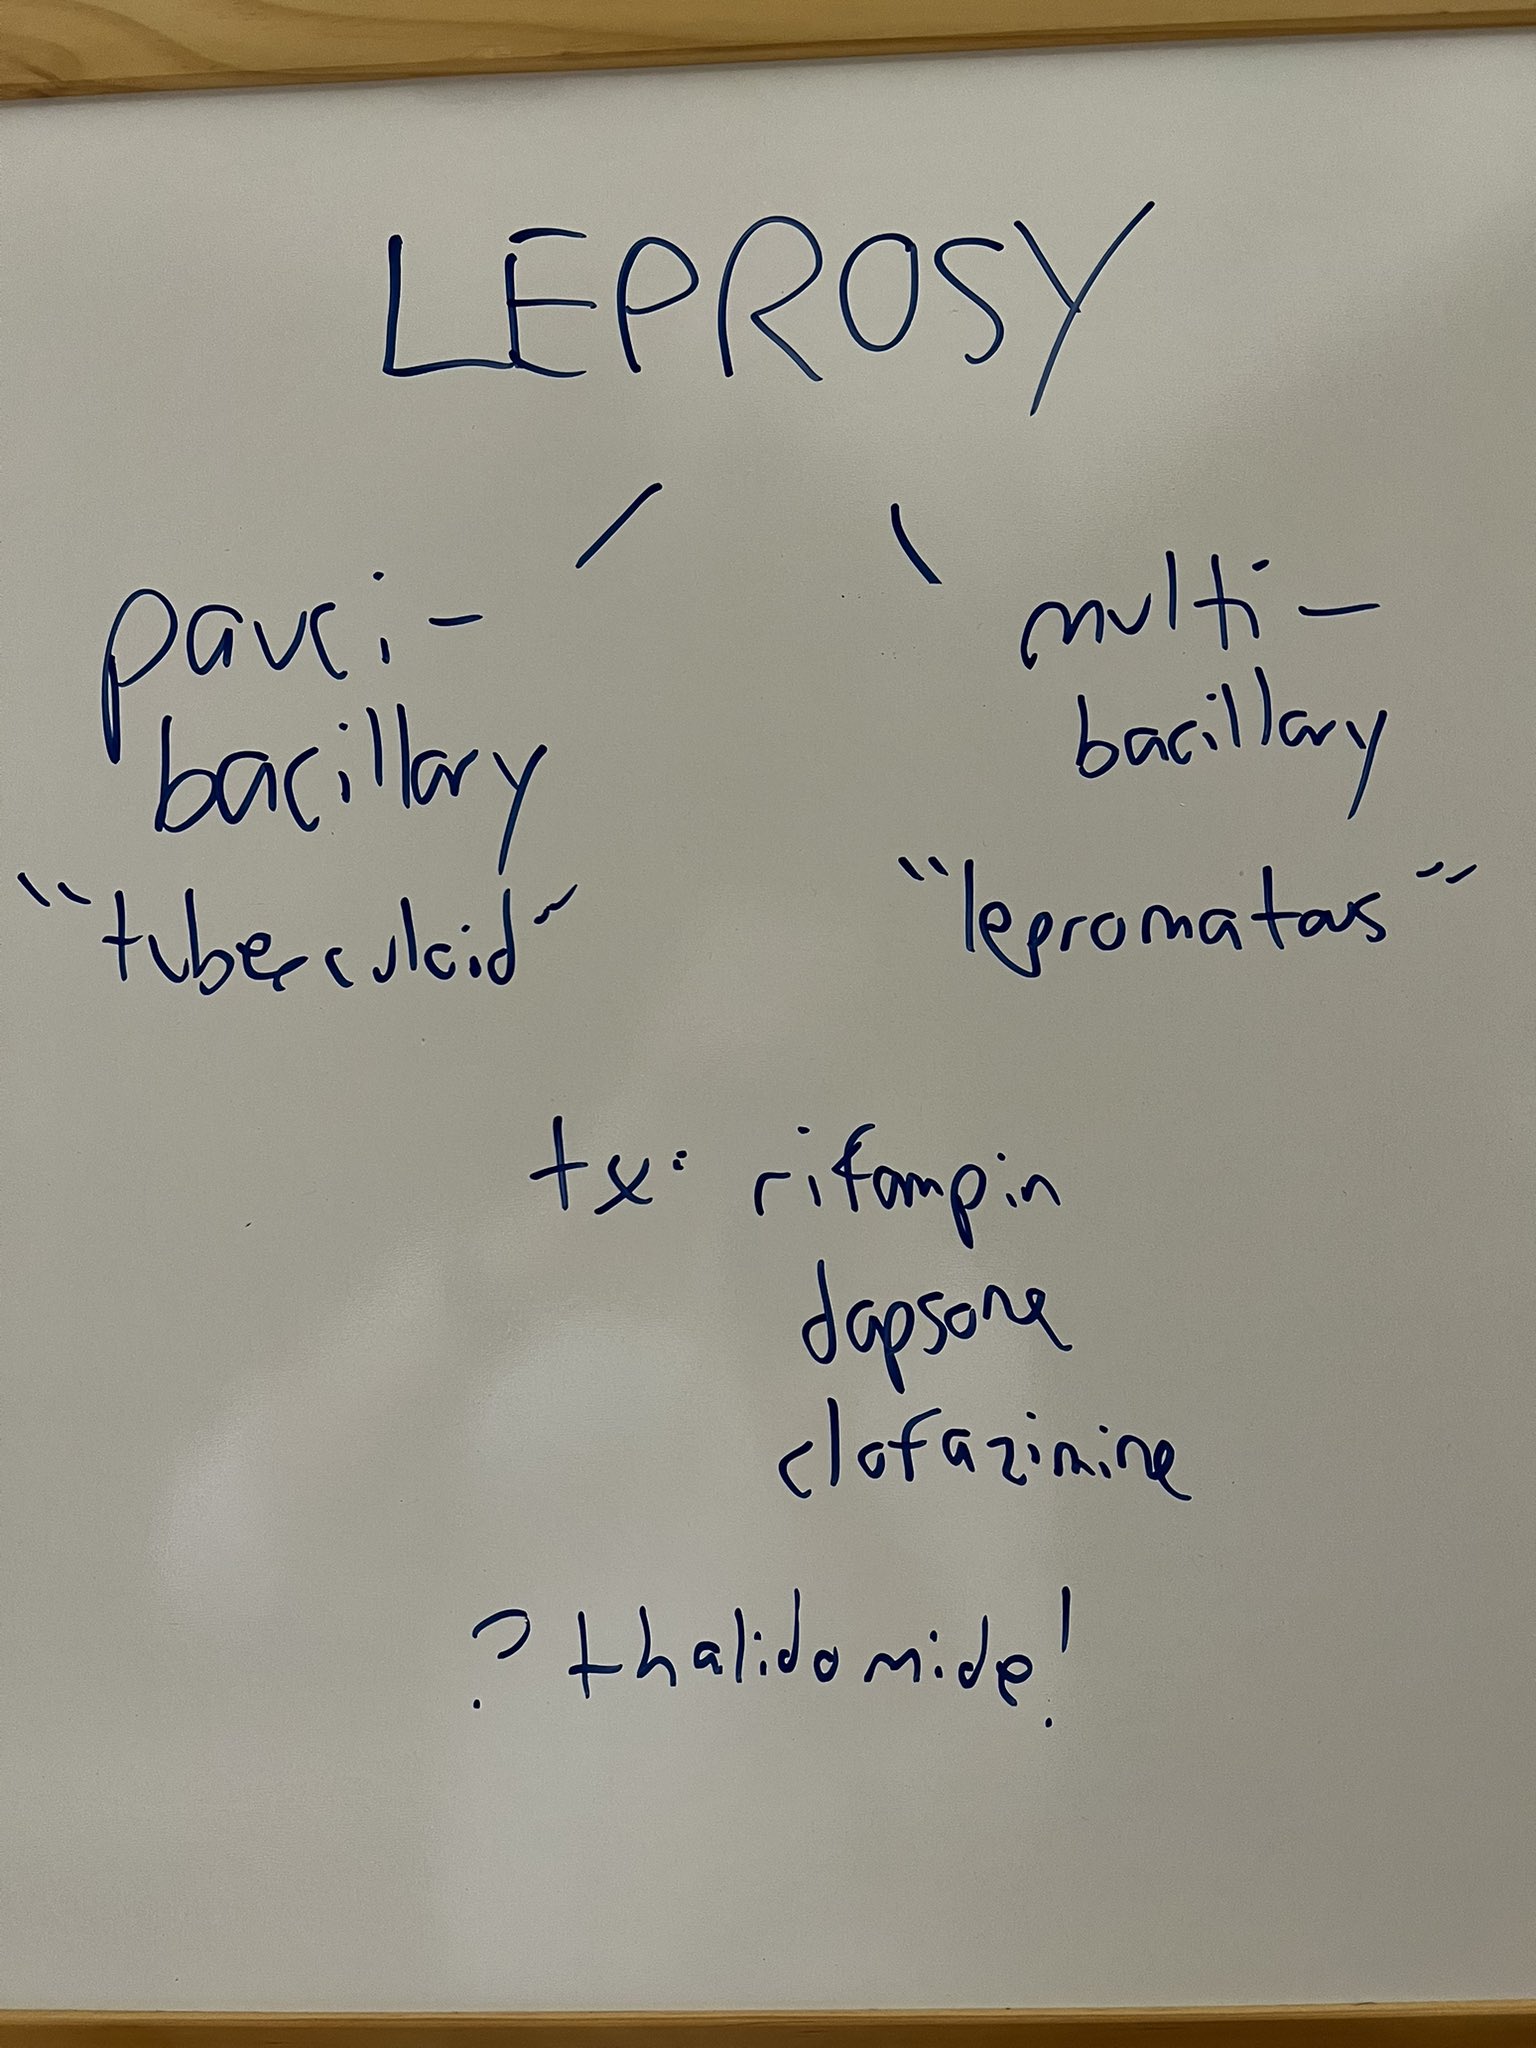 LEPROSY
pauci-
bacillary
"tuberculoid"
multi-
bacillary
"lepromatous"
tx: rifampin
dapsone
clofazimine
? thalidomide!